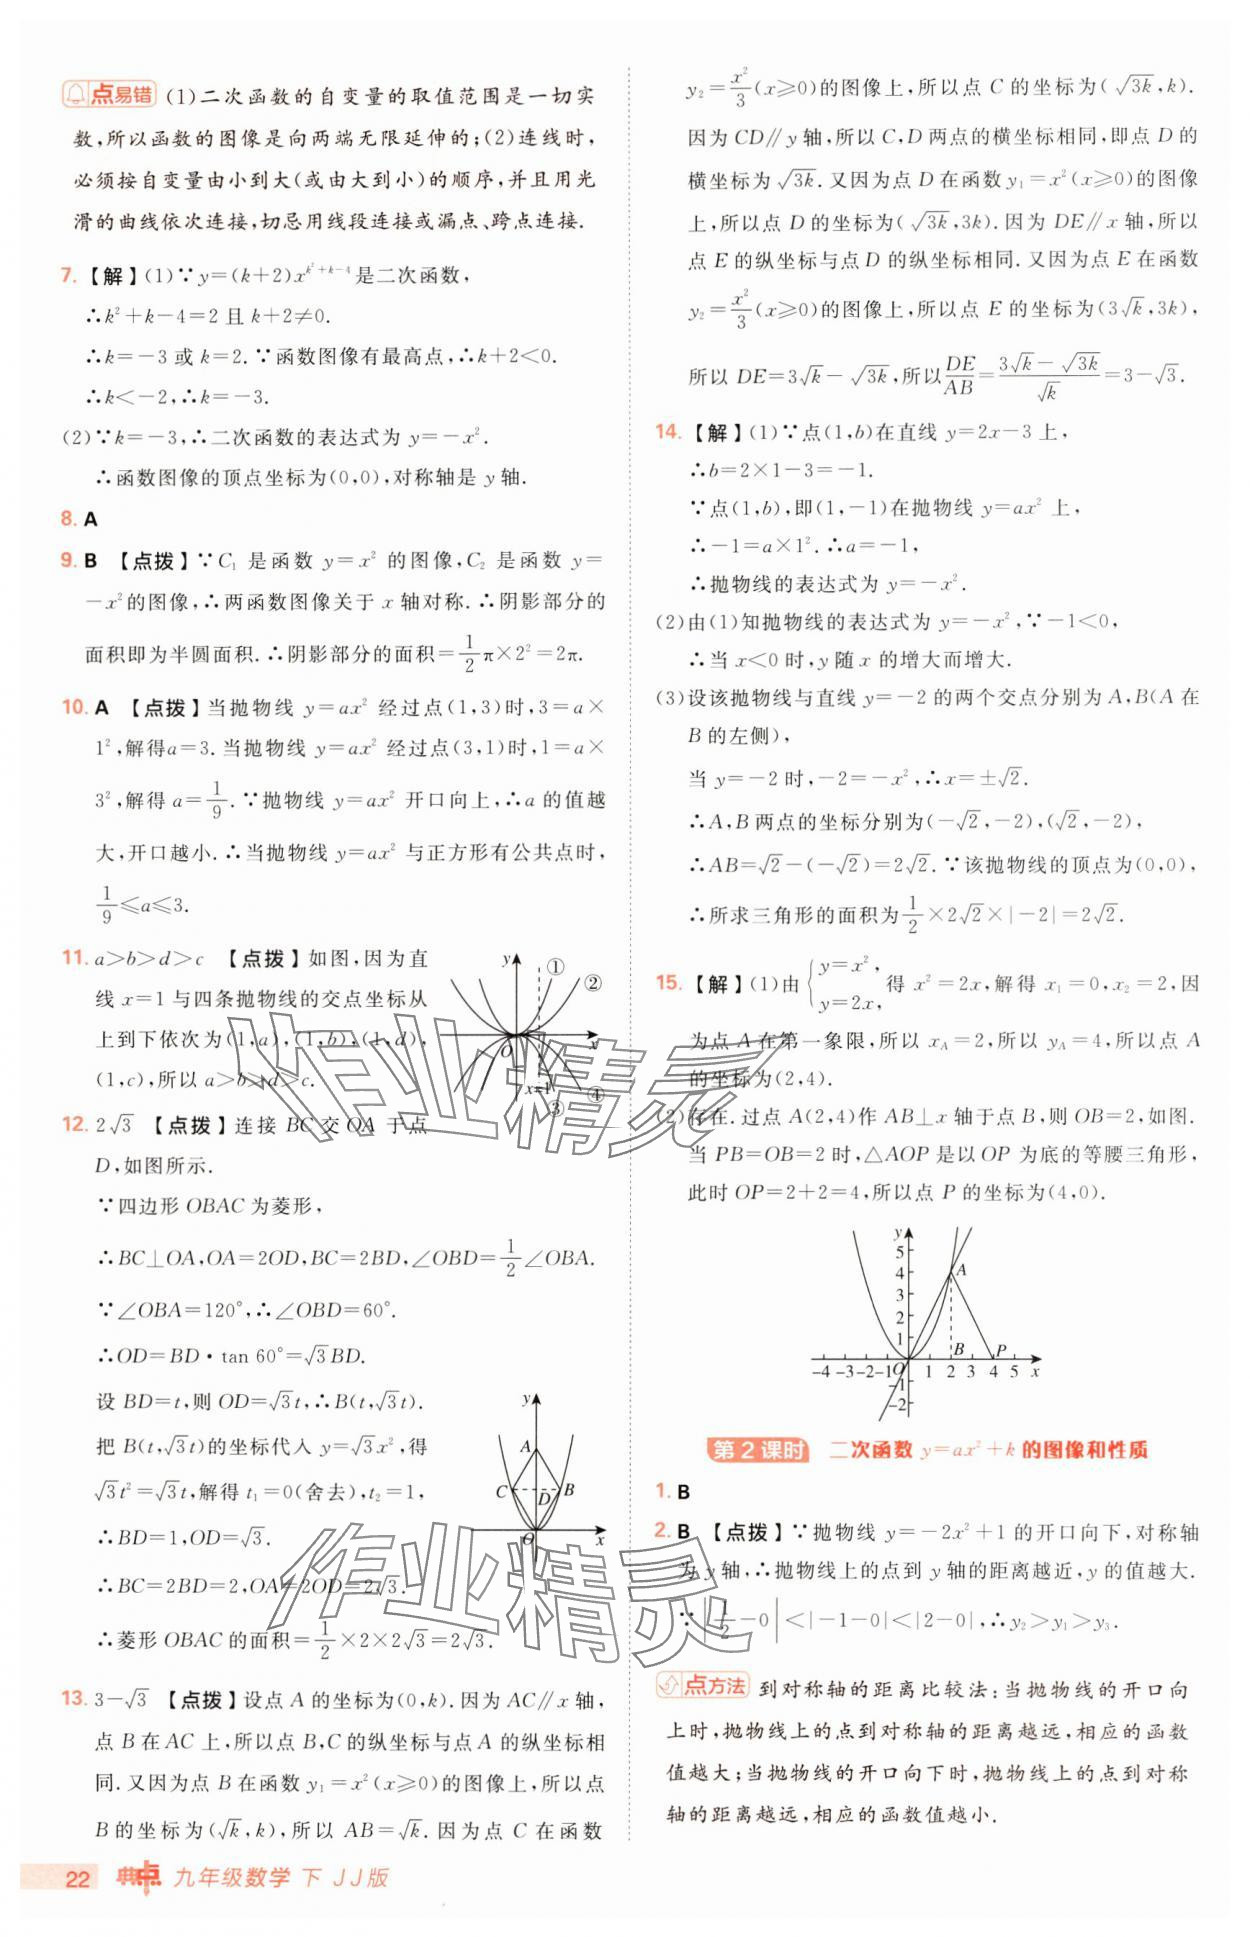 点易错 (1)二次函数的自变量的取值范围是一切实
数,所以函数的图像是向两端无限延伸的;(2)连线时,
必须按自变量由小到大(或由大到小)的顺序,并且用光
滑的曲线依次连接,切忌用线段连接或漏点、跨点连接.
7.【解】(1)∵y=(k+2)x^{k²+k-4}是二次函数,
∴k²+k-4=2且k+2≠0.
∴k=-3或k=2.∵函数图像有最高点,∴k+2<0.
∴k<-2,∴k=-3.
(2)∵k=-3,∴二次函数的表达式为 y=-x².
∴函数图像的顶点坐标为(0,0),对称轴是 y 轴.
8. A
9. B 【点拨】∵C₁ 是函数 y=x² 的图像,C₂ 是函数 y=
-x²的图像,∴两函数图像关于 x 轴对称.∴阴影部分的
面积即为半圆面积.∴阴影部分的面积=1/2π×2²=2π.
10. A 【点拨】当抛物线 y=ax² 经过点(1,3)时,3=a×
1²,解得a=3.当抛物线 y=ax² 经过点(3,1)时,1=a×
3²,解得 a=1/9.∵抛物线 y=ax² 开口向上,∴a 的值越
大,开口越小.∴当抛物线 y=ax² 与正方形有公共点时,
1/9≤a≤3.
11. a>b>d>c 【点拨】如图,因为直
线 x=1 与四条抛物线的交点坐标从
上到下依次为(1,a),(1,b),(1,d),
(1,c),所以 a>b>d>c.
y ① ② O x x=1 ③ ④
12. 2√3 【点拨】连接 BC 交 OA 于点
D,如图所示.
∵四边形 OBAC 为菱形,
∴BC⊥OA,OA=2OD,BC=2BD,∠OBD=1/2∠OBA.
∵∠OBA=120°,∴∠OBD=60°.
∴OD=BD·tan 60°=√3BD.
设 BD=t,则 OD=√3t,∴B(t,√3t).
把 B(t,√3t)的坐标代入 y=√3x²,得
√3t²=√3t,解得 t₁=0(舍去),t₂=1,
∴BD=1,OD=√3.
∴BC=2BD=2,OA=2OD=2√3.
∴菱形 OBAC 的面积=1/2×2×2√3=2√3.
y A C D B O x
13. 3-√3 【点拨】设点 A 的坐标为(0,k).因为 AC∥x 轴,
点 B 在 AC 上,所以点 B,C 的纵坐标与点 A 的纵坐标相
同.又因为点 B 在函数 y₁=x²(x≥0)的图像上,所以点
B 的坐标为(√k,k),所以 AB=√k.因为点 C 在函数
y₂=x²/3(x≥0)的图像上,所以点 C 的坐标为(√3k,k).
因为 CD∥y 轴,所以 C,D 两点的横坐标相同,即点 D 的
横坐标为√3k.又因为点 D 在函数 y₁=x²(x≥0)的图像
上,所以点 D 的坐标为(√3k,3k).因为 DE∥x 轴,所以
点 E 的纵坐标与点 D 的纵坐标相同.又因为点 E 在函数
y₂=x²/3(x≥0)的图像上,所以点 E 的坐标为(3√k,3k),
所以 DE=3√k-√3k,所以DE/AB=(3√k-√3k)/√k=3-√3.
14.【解】(1)∵点(1,b)在直线 y=2x-3 上,
∴b=2×1-3=-1.
∵点(1,b),即(1,-1)在抛物线 y=ax² 上,
∴-1=a×1².∴a=-1,
∴抛物线的表达式为 y=-x².
(2)由(1)知抛物线的表达式为 y=-x²,∵-1<0,
∴当 x<0 时,y 随 x 的增大而增大.
(3)设该抛物线与直线 y=-2 的两个交点分别为 A,B(A 在
B 的左侧),
当 y=-2 时,-2=-x²,∴x=±√2.
∴A,B 两点的坐标分别为(-√2,-2),(√2,-2),
∴AB=√2-(-√2)=2√2.∵该抛物线的顶点为(0,0),
∴所求三角形的面积为1/2×2√2×|-2|=2√2.
15.【解】(1)由{y=x², y=2x,得 x²=2x,解得 x₁=0,x₂=2,因
为点 A 在第一象限,所以 x_A=2,所以 y_A=4,所以点 A
的坐标为(2,4).
(2)存在.过点 A(2,4)作 AB⊥x 轴于点 B,则 OB=2,如图.
当 PB=OB=2 时,△AOP 是以 OP 为底的等腰三角形,
此时 OP=2+2=4,所以点 P 的坐标为(4,0).
y 5 4 3 2 1 A B P
-4 -3 -2 -1 O 1 2 3 4 5 x
-1
-2
第 2 课时 二次函数 y=ax²+k 的图像和性质
1. B
2. B 【点拨】∵抛物线 y=-2x²+1 的开口向下,对称轴
为 y 轴,∴抛物线上的点到 y 轴的距离越近,y 的值越大.
∵|1/2-0|<|-1-0|<|2-0|,∴y₂>y₁>y₃.
点方法 到对称轴的距离比较法:当抛物线的开口向
上时,抛物线上的点到对称轴的距离越远,相应的函数
值越大;当抛物线的开口向下时,抛物线上的点到对称
轴的距离越远,相应的函数值越小.
22 典点 九年级数学 下 JJ版
作业精灵
作业精灵